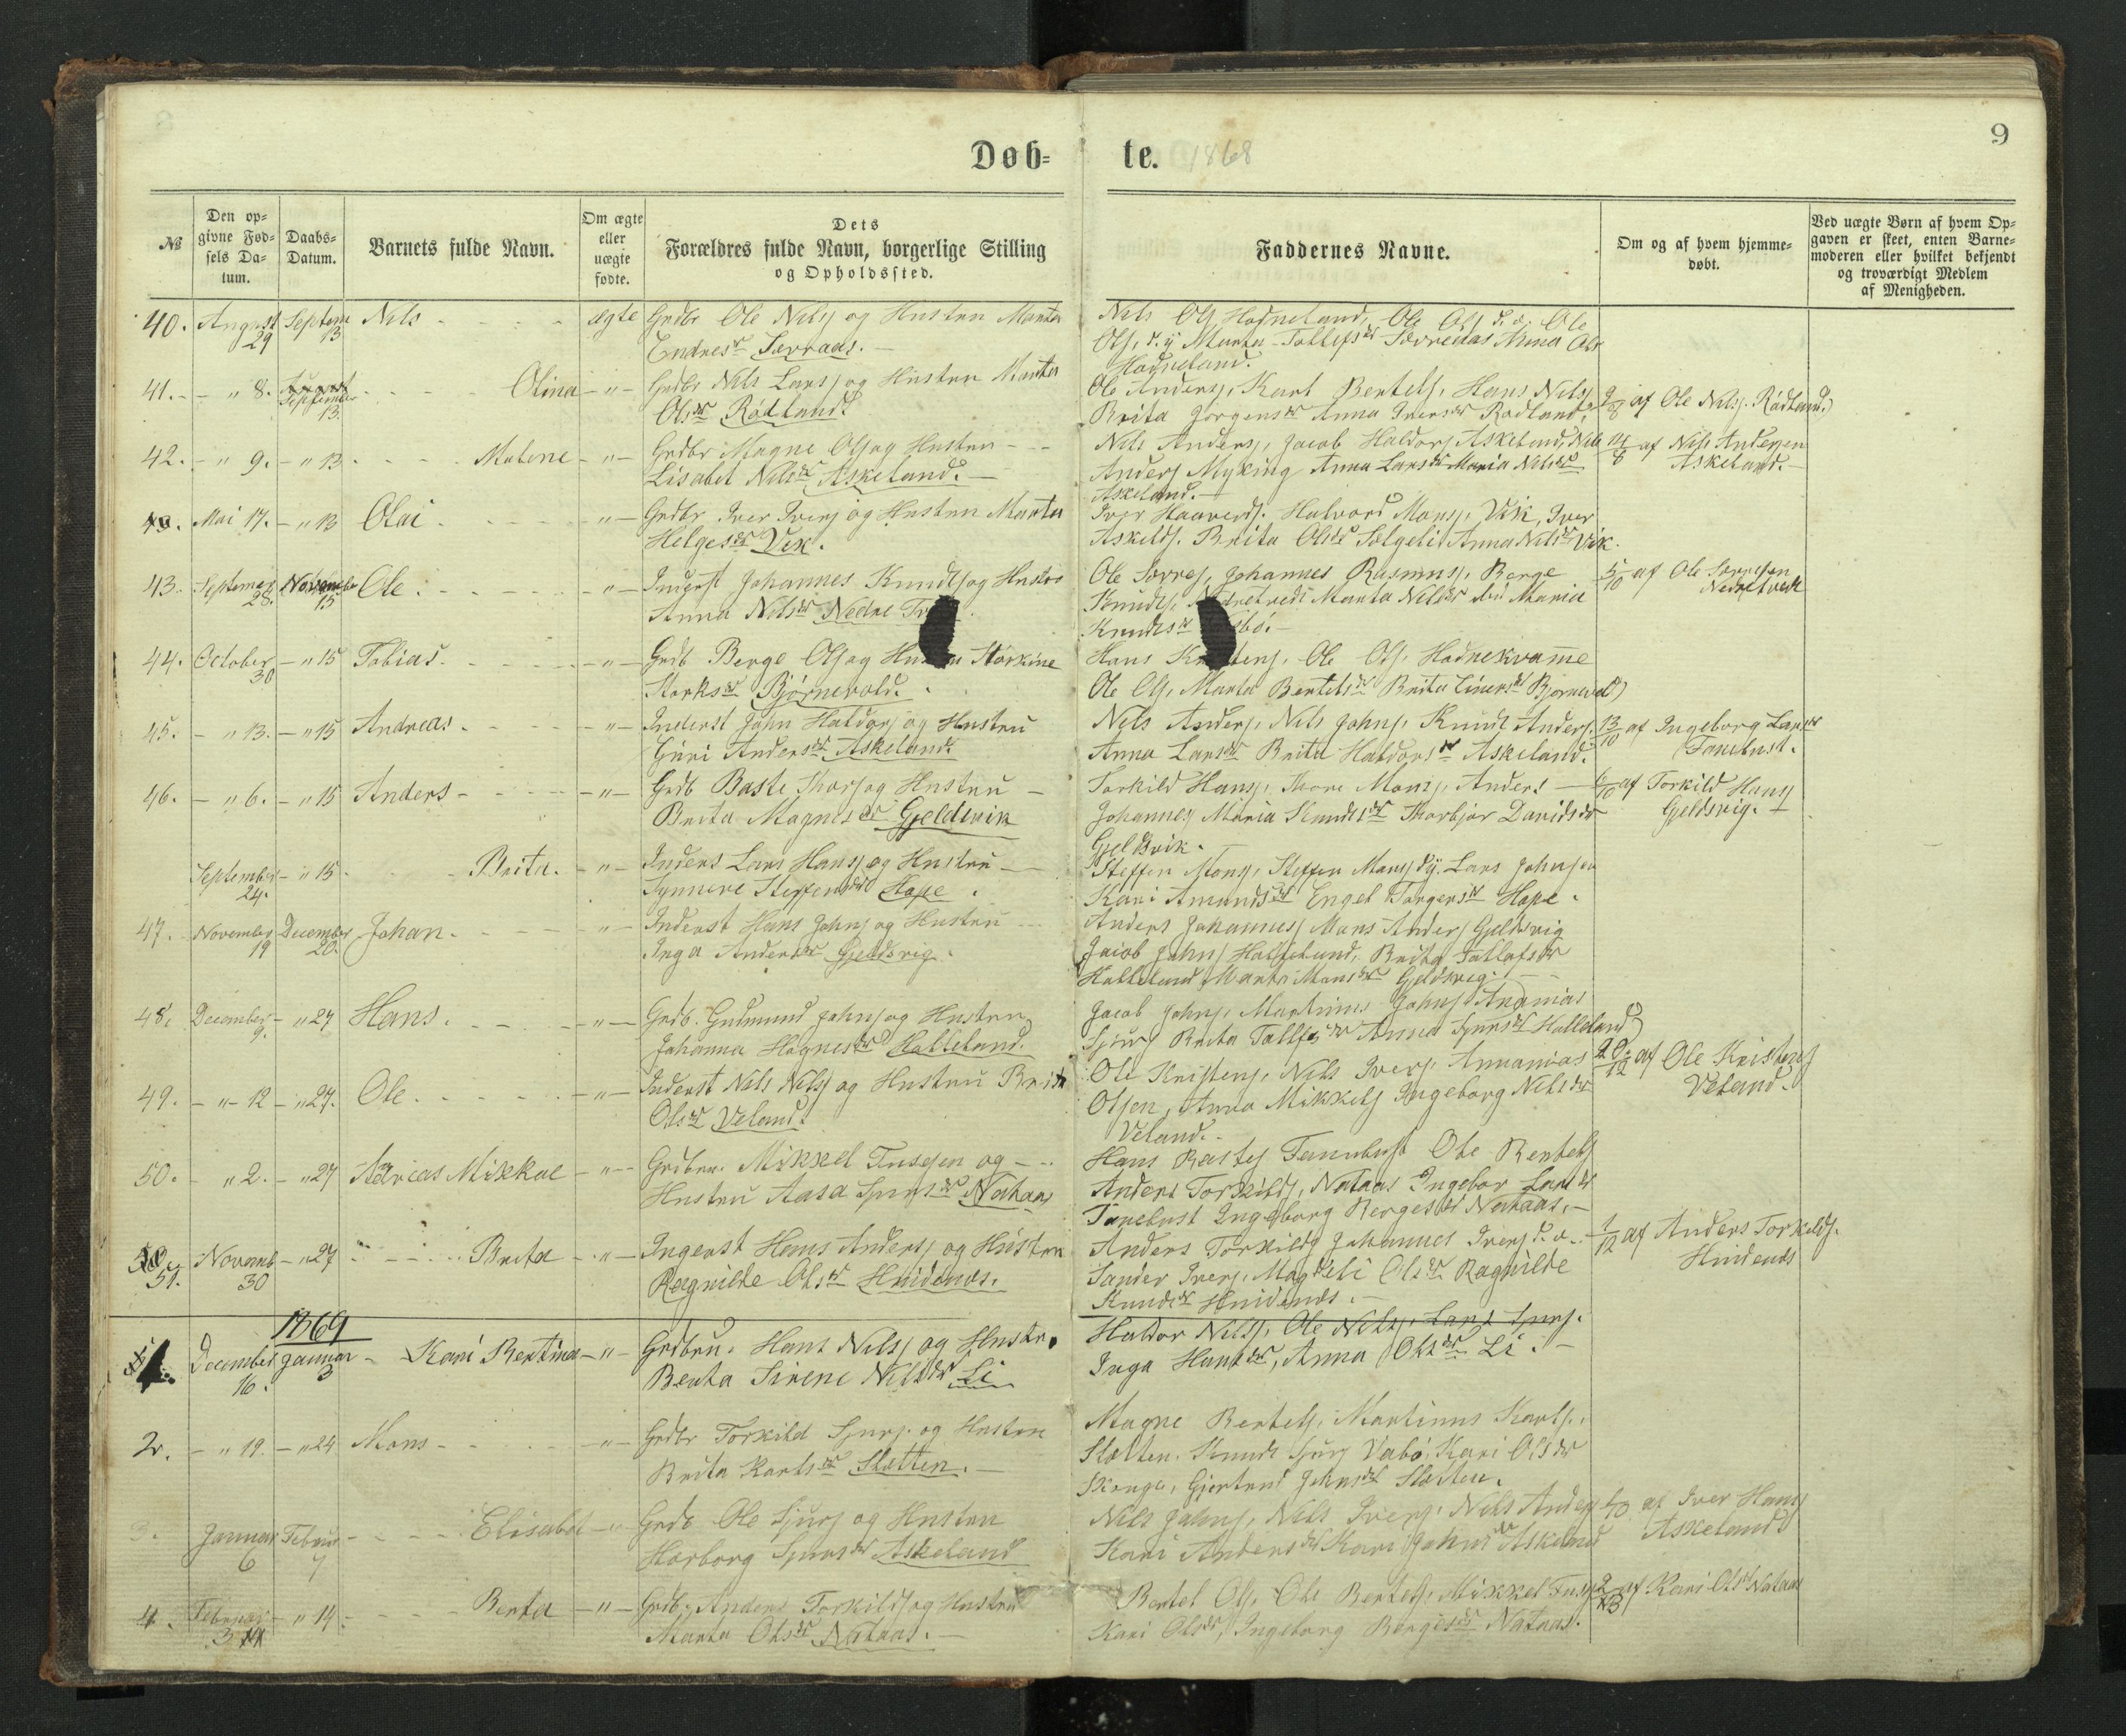 9
Døb-
te. 1868
№
Den op-
givne Fød-
sels Da-
tum.
Daabs-
Datum.
Barnets fulde Navn.
Om ægte
eller
uægte
fødte.
Dets
Forældres fulde Navn, borgerlige Stilling
og Opholdssted.
Faddernes Navne.
Om og af hvem hjemme-
døbt.
Ved uægte Børn af hvem Op-
gaven er skeet, enten Barne-
moderen eller hvilket bekjendt
og troværdigt Medlem
af Menigheden.
40. August Septem Nils ægte Grdbr Ole Nilsj og Hustru Marta
29 13 Endresdr Særraas.
Nils Olsj Hodneland, Ole Olsj d.æ. Ole
Olsj, d.y Marta Tollefsdr Anna Ols
Hodneland.
41. " 8. August Olina " Grdbr Nils Larsj og Hustru Marta
September
13. Olsdr Rødland.
Ole Andersj, Karl Bertelsj, Hans Nilsj
Brita Jørgensdr Anna Iversdr Rødland.
9/8 af Ole Nilsj. Rødland
42. " 9. " 13 Malene " Grdbr Magne Olsj og Hustru
Lisabet Nilsdr Askeland.
Nils Andersj, Jacob Haldorsj Askeland, Nils
Andersj Myking Anna Larsdr Maria Nilsdr
Askeland.
14/8 af Nils Andersen
Askeland.
Mai 17. " 13 Olai " Grdbr Iver Iversj og Hustru Marta
Helgesdr Vik.
Iver Haavardsj. Halvord Monsj, Vik, Iver
Askeldsj. Brita Olsdr Anna Nilsdr Vik.
43. September November Ole " Inderst Johannes Knudtsj og Hustru
28. 15 Anna Nilsdr Nedre
Ole Sørresj, Johannes Rasmusj, Berge
Knudtsj, Nedretvedt Marta Nilsdr ibd Maria
Knudtsdr
5/10 af Ole Sørresen
Nedretvedt
44. October " 15 Tobias " Grdb Berge Olsj og Hustru Størkine
30 Størksdr Bjørnevold.
Hans Olsj. Hodnekvamme
Ole Olsj, Marta Bertelsdr Brita Einersdr Bjørnevold
45. " 13. " 15 Andreas " Inderst John Haldorsj og Hustru
Guri Andersdr Askeland.
Nils Andersj, Nils Johnsj, Knudt Andersj.
Anna Larsdr Brita Haldorsdr Askeland.
13/10 af Ingeborg Larsdr
Tanebust.
46. " 6. " 15 Anders " Grdb Baste Thorsj og Hustru
Brita Magnesdr Gjeldsvik
Torkild Hansj, Thore Monsj, Anders
Johannesj Maria Knudtsdr Thorbjør Davidsdr
Gjeldsvik.
6/10 af Torkild Hansj
Gjeldsvig.
September " 15 Brita. " Inders Lars Hansj og Hustru
24. Synneve Steffensdr Hope.
Steffen Monsj, Steffen Monsj d.y. Lars Johnsen
Kari Amundsdr Engel Torgersdr Hope.
47. November December Johan " Inderst Hans Johnsj og Hustru
19 20. Inga Andersdr Gjeldsvig.
Anders Johannesj Mons Andersj Gjeldsvig
Jacob Johnsj Halleland, Brita Tollefsdr
Halleland Marta Monsdr Gjeldsvig.
48. December " 27 Hans " Grdb. Gudmund Johnsj og Hustru
9. Johanna Hognesdr Halleland.
Jacob Johnsj, Martinus Johnsj Ananias
Sjursj Brita Tollfsdr Anna Sjursdr Halleland
49. " 12 " 27. Ole " Inderst Nils Nilsj og Hustru Brita
Olsdr Veland.
Ole Kristensj, Nils Iversj, Annanias
Olsen, Anna Mikkelsj Ingeborg Nilsdr
Veland.
20/12 af Ole Kristensj
Veland.
50. " 2. " 27 Mikkal " Grdbru. Mikkel Tusesen og
Hustru Aasa Sjursdr Nataas
Hans Bastesj Tanebust Ole Bertelsj
Anders Torkildsj, Nataas Ingebor Larsdr
Tanebust Ingeborg Bergesdr Nataas.
51. Novemb " 27 Brita " Ingerst Hans Andersj og Hustru
30 Ragnilde Olsdr Hindenes.
Anders Torkildsj Johannes Iversj d.æ.
Sander Iversj, Magdeli Olsdr Ragnilde
Knudsdr Hindenes.
1/12 af Anders Torkeldsj.
Hindenes
1869
1. December Januar Kari Bertina " Grdbru. Hans Nilsj og Hustr.
16. 3 Berta Sirene Nilsdr Li
Haldor Nilsj, Ole Nilsj, Lars Sjursj.
Inga Hansdr, Anna Olsdr Li.
2. " 19. " 24 Mons " Grdbr Torkild Sjursj. og Hustru
Brita Karlsdr Sletten.
Magne Bertelsj, Martinus Karlsj,
Sletten. Knudt Sjursj Vabø, Kari Olsdr
Skonge, Gjertrud Johnsdr Sletten.
3. Januar Februar Elisabet " Grdb Ole Sjursj og Hustru
6 7 Horborg Sjursdr Askeland
Nils Johnsj, Nils Iversj, Nils Andersj
Kari Andersdr Kari Johnsdr Askeland
af Iver Hansj
Askeland
4. Februar " 14. Berta " Grdb. Anders Torkildsj og Hustru
3 Marta Olsdr Nataas.
Bertel Olsj, Ole Bertelsj, Mikkel Tusesj
Kari Olsdr, Ingeborg Bergesdr Nataas.
af Kari Olsdr Nataas